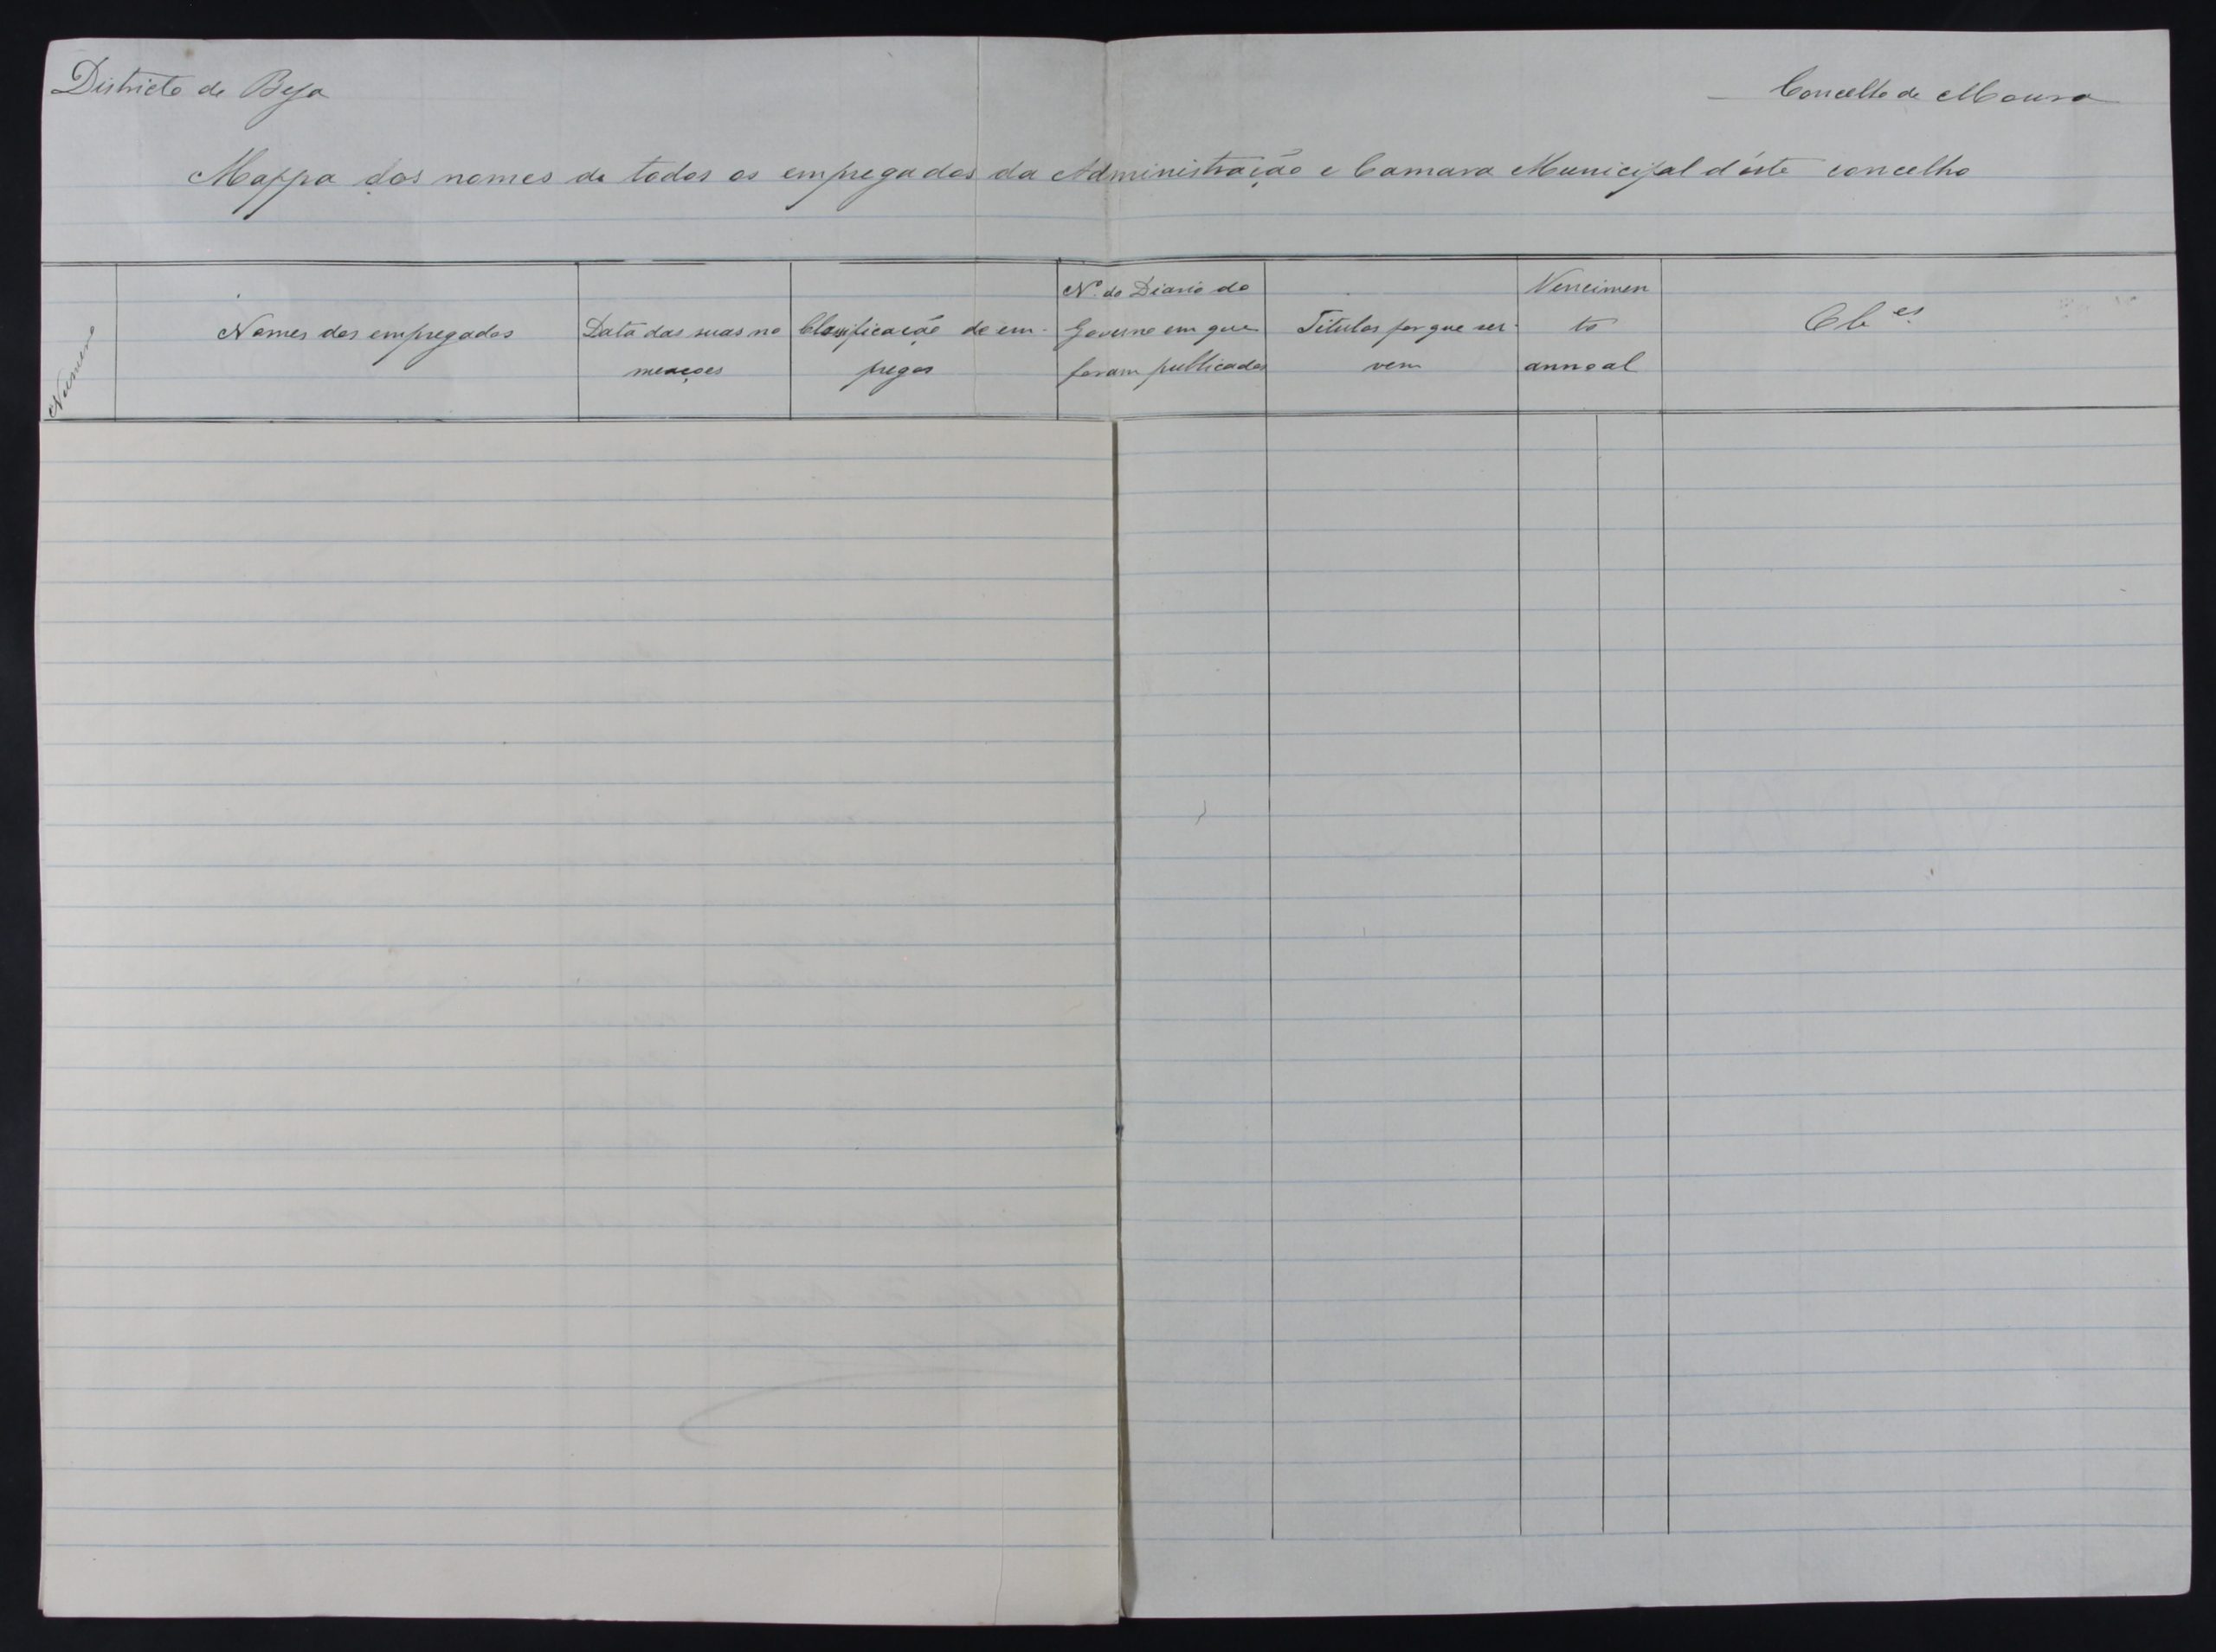 Districto de Beja
Concelho de Moura
Mappa dos nomes de todos os empregados da Administração e Camara Municipal d'éste concelho
Numeros
Nomes dos empregados
Data das suas no
meaçoes
Classificação de em-
pregos
Nº do Diario do
Governo em que
foram publicados
Titulos por que ser-
vem
Vencimen
to
annoal
Ob.es